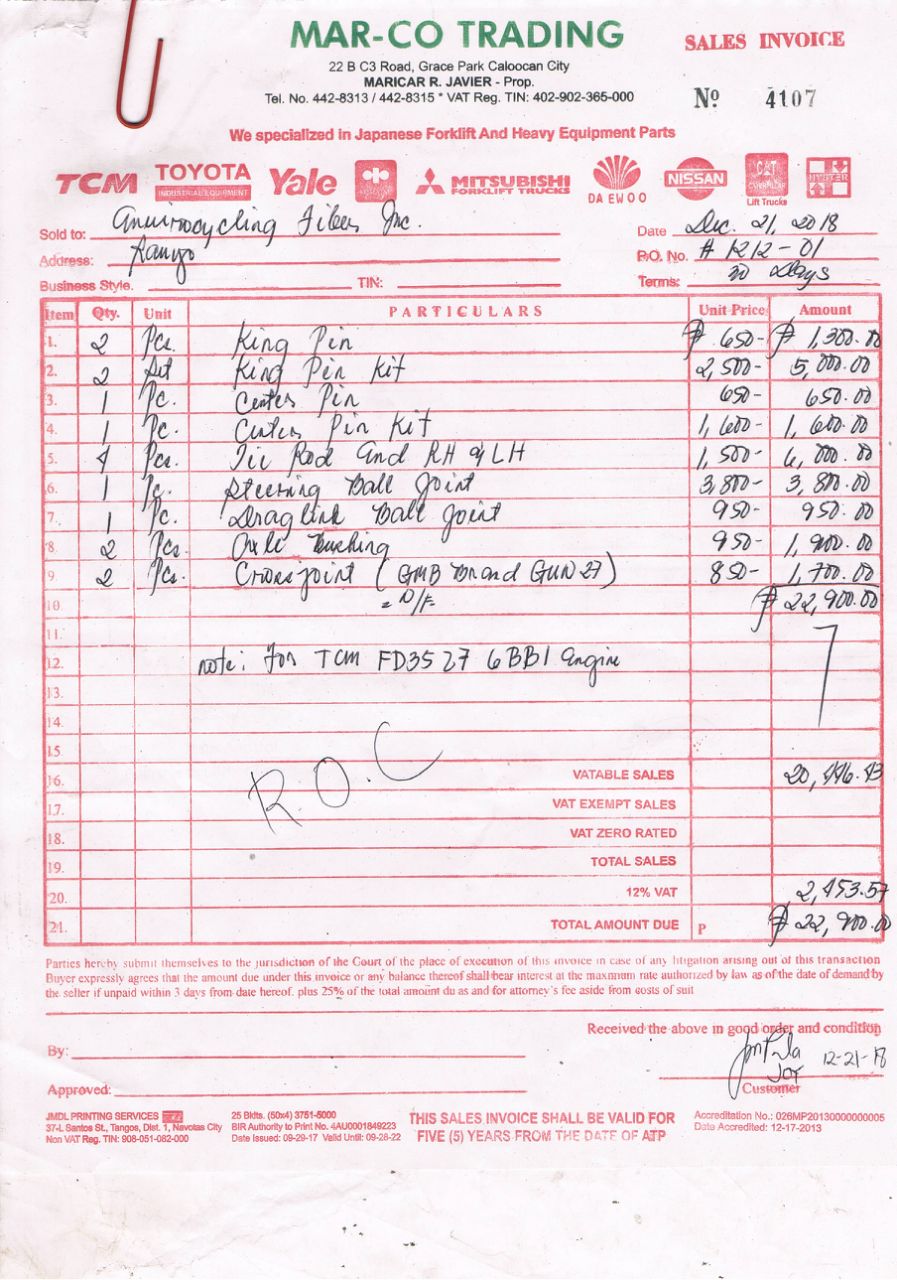 MAR-CO TRADING
22 B C3 Road, Grace Park Caloocan City
MARICAR R. JAVIER - Prop.
Tel. No. 442-8313 / 442-8315 * VAT Reg. TIN: 402-902-365-000
SALES INVOICE
Nº 4107
We specialized in Japanese Forklift And Heavy Equipment Parts
TCM TOYOTA INDUSTRIAL EQUIPMENT Yale MITSUBISHI FORKLIFT TRUCKS DAEWOO NISSAN CAT Lift Trucks HYSTER
Sold to: Fiber Inc. Date Dec. 21, 2018
Address: P.O. No. # 1212-01
Business Style. TIN: Terms: 30 Days
Item Qty. Unit PARTICULARS Unit Price Amount
1. 2 Pcs. King Pin ₱ 650- ₱ 1,300.00
2. 2 Set King Pin Kit 2,500- 5,000.00
3. 1 Pc. Center Pin 650- 650.00
4. 1 Pc. Center Pin Kit 1,600- 1,600.00
5. 4 Pcs. Tie Rod End RH & LH 1,500- 6,000.00
6. 1 Pc. Steering Ball Joint 3,800- 3,800.00
7. 1 Pc. Draglink Ball Joint 950- 950.00
8. 2 Pcs. Axle Bushing 950- 1,900.00
9. 2 Pcs. Crossjoint (GMB Brand GUN 27) 850- 1,700.00
10. = N/F ₱ 22,900.00
11.
12. note: For TCM FD35 Z7 6BB1 Engine
13.
14.
15.
R.O.C
16. VATABLE SALES 20,446.43
17. VAT EXEMPT SALES
18. VAT ZERO RATED
19. TOTAL SALES
20. 12% VAT 2,453.57
21. TOTAL AMOUNT DUE P ₱ 22,900.00
Parties hereby submit themselves to the jurisdiction of the Court of the place of execution of this invoice in case of any litigation arising out of this transaction
Buyer expressly agrees that the amount due under this invoice or any balance thereof shall bear interest at the maximum rate authorized by law as of the date of demand by
the seller if unpaid within 3 days from date hereof. plus 25% of the total amount du as and for attorney's fee aside from costs of suit
Received the above in good order and condition
By:
12-21-18
Approved:
Customer
JMDL PRINTING SERVICES
37-L Santos St., Tangos, Dist. 1, Navotas City
Non VAT Reg. TIN: 908-051-082-000
25 Bklts. (50x4) 3751-5000
BIR Authority to Print No. 4AU0001849223
Date Issued: 09-29-17 Valid Until: 09-28-22
THIS SALES INVOICE SHALL BE VALID FOR
FIVE (5) YEARS FROM THE DATE OF ATP
Accreditation No.: 026MP20130000000005
Date Accredited: 12-17-2013